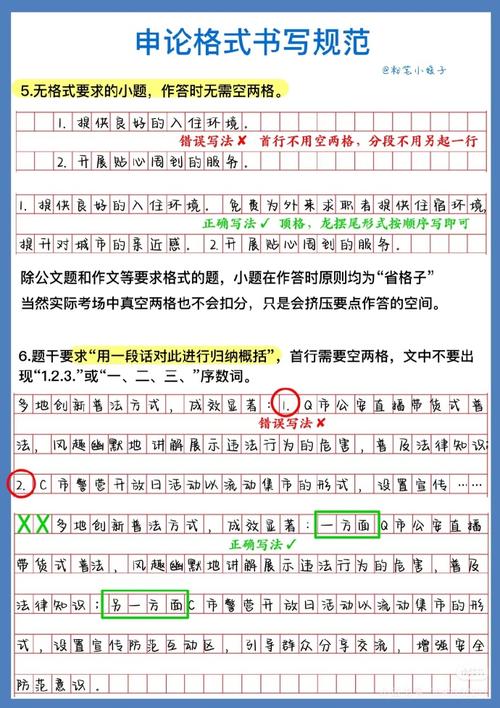 申论格式书写规范
@粉笔小嫂子
5.无格式要求的小题，作答时无需空两格。
1.提供良好的入住环境.
错误写法✘ 首行不用空两格，分段不用另起一行
2.开展贴心周到的服务.
1.提供良好的入住环境.免费为外来求职者提供住宿环境,
正确写法✓ 顶格，龙摆尾形式按顺序写即可
提升对城市的亲近感.2.开展贴心周到的服务.
除公文题和作文等要求格式的题，小题在作答时原则均为“省格子”
当然实际考场中真空两格也不会扣分，只是会挤压要点作答的空间。
6.题干要求“用一段话对此进行归纳概括”，首行需要空两格，文中不要出
现“1.2.3.”或“一、二、三、”序数词。
多地创新普法方式，成效显著：1.Q市公安直播带货式普
错误写法✘
法，风趣幽默地讲解展示违法行为的危害，普及法律知识
2.C市警营开放日活动以流动集市的形式，设置宣传……
XX多地创新普法方式，成效显著：一方面Q市公安直播
正确写法✓
带货式普法，风趣幽默地讲解展示违法行为的危害，普及
法律知识；另一方面C市警营开放日活动以流动集市的形
式，设置宣传防范互动区，引导群众分享交流，增强安全
防范意识.